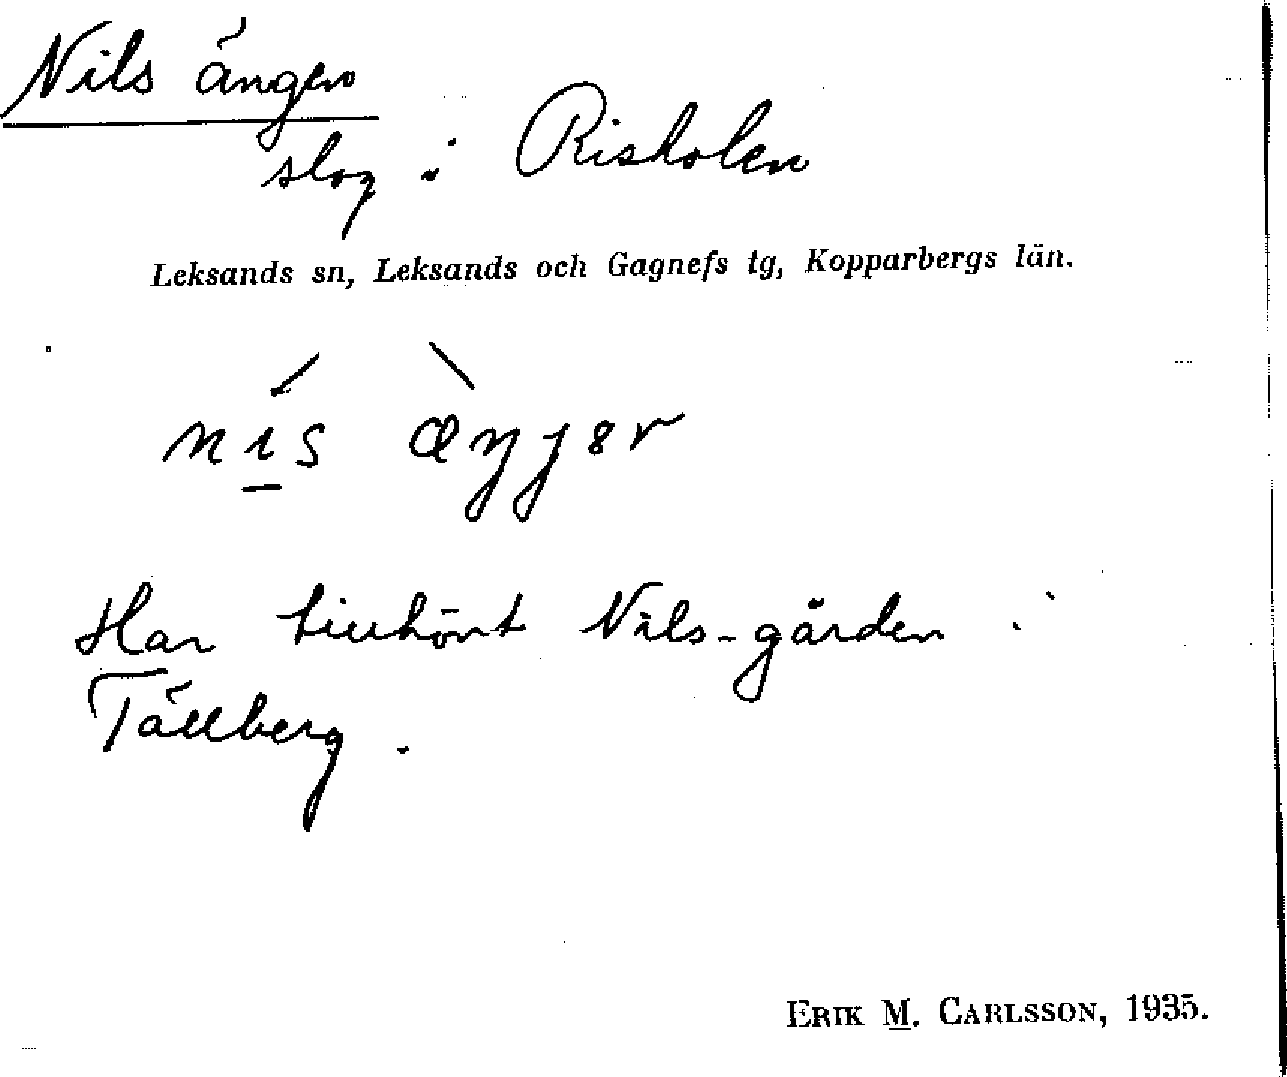 Nils ängen
slog i Risholen
Leksands sn, Leksands och Gagnefs tg, Kopparbergs län.
nis æŋjər
Har tillhört Nils-gården i
Tällberg.
ERIK M. CARLSSON, 1935.